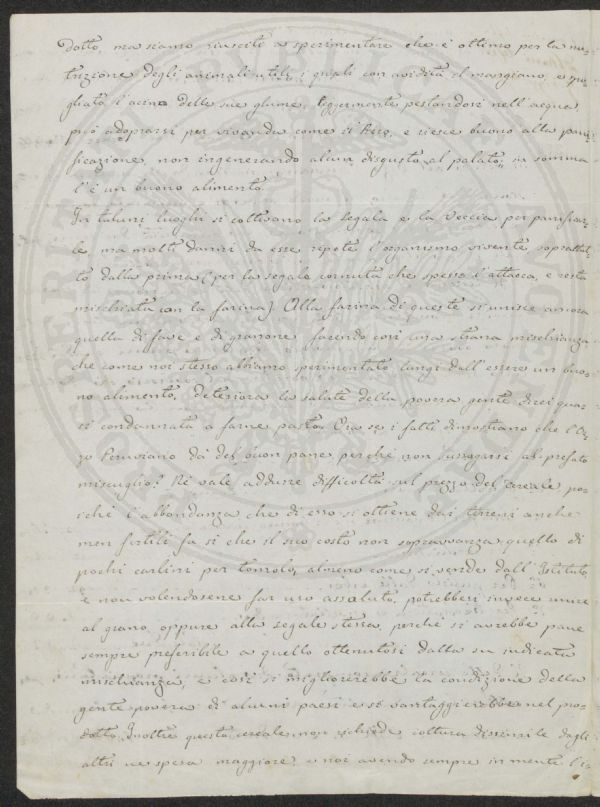 dotto, ma siamo riusciti a sperimentare che è ottimo per la nu-
trizione degli animali utili i quali con avidità il mangiano, e spo-
gliato l'acino delle sue glume, leggermente pestandosi nell'acqua
può adoprarsi per vivanda come il Riso, e riesce buono alla pani-
ficazione, non ingenerando alcun disgusto al palato, in somma
l'è un buono alimento.
In taluni luoghi si coltivano la Segala e la Veccia per panificar-
le ma molti danni da esse ripete l'organismo vivente soprattut-
to dalla prima (per la segale cornuta che spesso l'attacca, e resta
mischiata con la farina). Alla farina di queste si unisce ancora
quella di fave e di granone facendo così una strana mischianza
che come noi stesso abbiamo sperimentato lungi dall'essere un buo-
no alimento, deteriora la salute della povera gente direi qua-
si condannata a farne pasto. Ora se i fatti dimostrano che l'Or-
zo Peruviano dà del buon pane, perché non surrogarsi al prefato
miscuglio? Nè vale addurre difficoltà sul prezzo del cereale poi-
ché l'abbondanza che di esso si ottiene dai terreni anche
men fertili fa sì che il suo costo non sopravvanza quello di
pochi carlini per tomolo, almeno come si vende dall'Istituto,
e non volendosene far uso assoluto, potrebbesi invece unire
al grano oppure alla segale stessa, perché si avrebbe pane
sempre preferibile a quello ottenutosi dalla su indicata
mischianza, e così si migliorerebbe la condizione della
gente povera di alcuni paesi e si vantaggierebbe nel pro-
dotto. Inoltre questo cereale non richiede coltura dissimile dagli
altri ne spesa maggiore e noi avendo sempre in mente l'e-